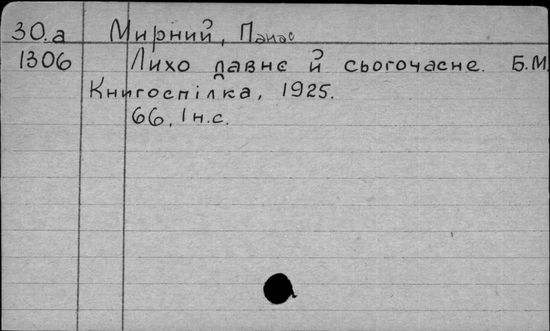 30.а Мирний, Панас
1306 Лихо давнє й сьогочасне. Б.М.
Книгоспілка, 1925.
66, 1 н.с.